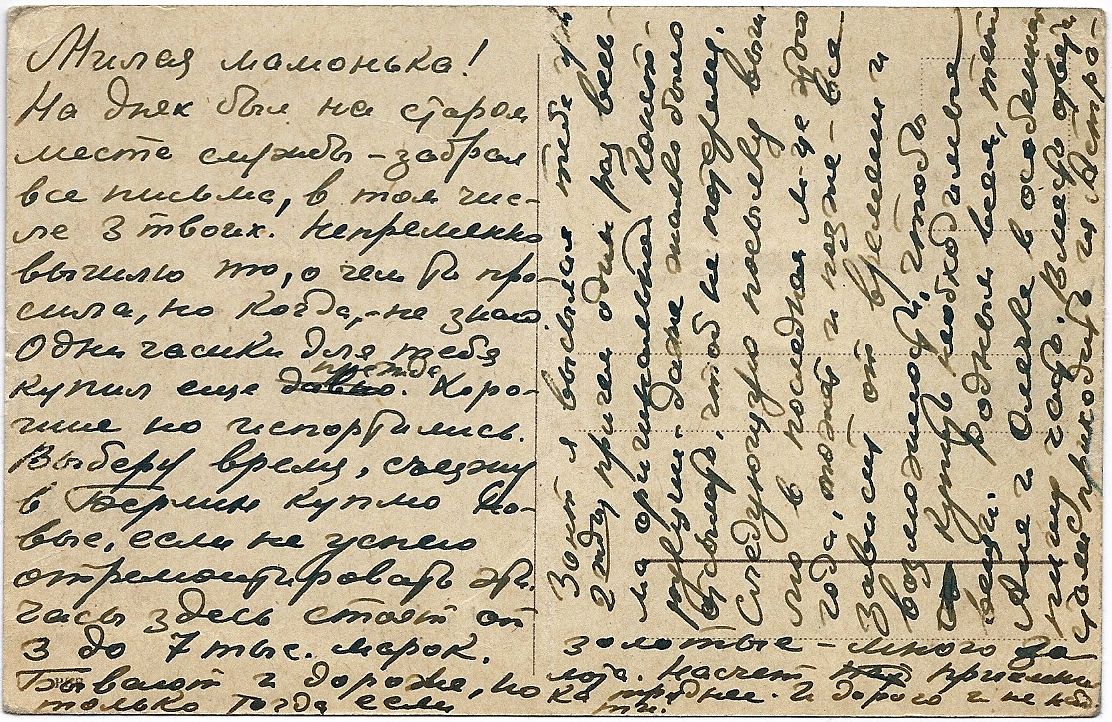 Милая мамонька!
На днях был на старом
месте службы – забрал
все письма, в том чис-
ле 3 твоих. Непременно
вышлю то, о чем ты про-
сила, но когда, – не знаю
Одни часики для тебя
купил еще прежде. Хоро-
шие но испортились.
Выберу время, съезжу
в Берлин куплю но-
вые, если не успею
отремонтировать эти
часы здесь стоят от
3 до 7 тыс. марок.
Бывают и дороже, но
только тогда если
золотые – много зо
лота. Насчет приемни
ка труднее. И дорого и не най
ти.
Зонт я высылал тебе уж
2 раза причем один раз весь-
ма оригинальной конст-
рукции – даже жалко было
отсылать, чтоб не потеряли.
Следующую посылку выш
лю в последнем м-це
года, может и позже – все
зависит от времени и
возможностей, чтобы
купить необходимые
вещи. Родным всем, тете
Ане и Олечке в особенн
пишу часто. Вместо ответ